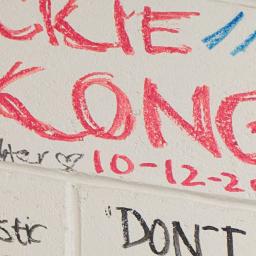 CKIE "
KONG
hter ♡ 10-12-20
stic "DON'T